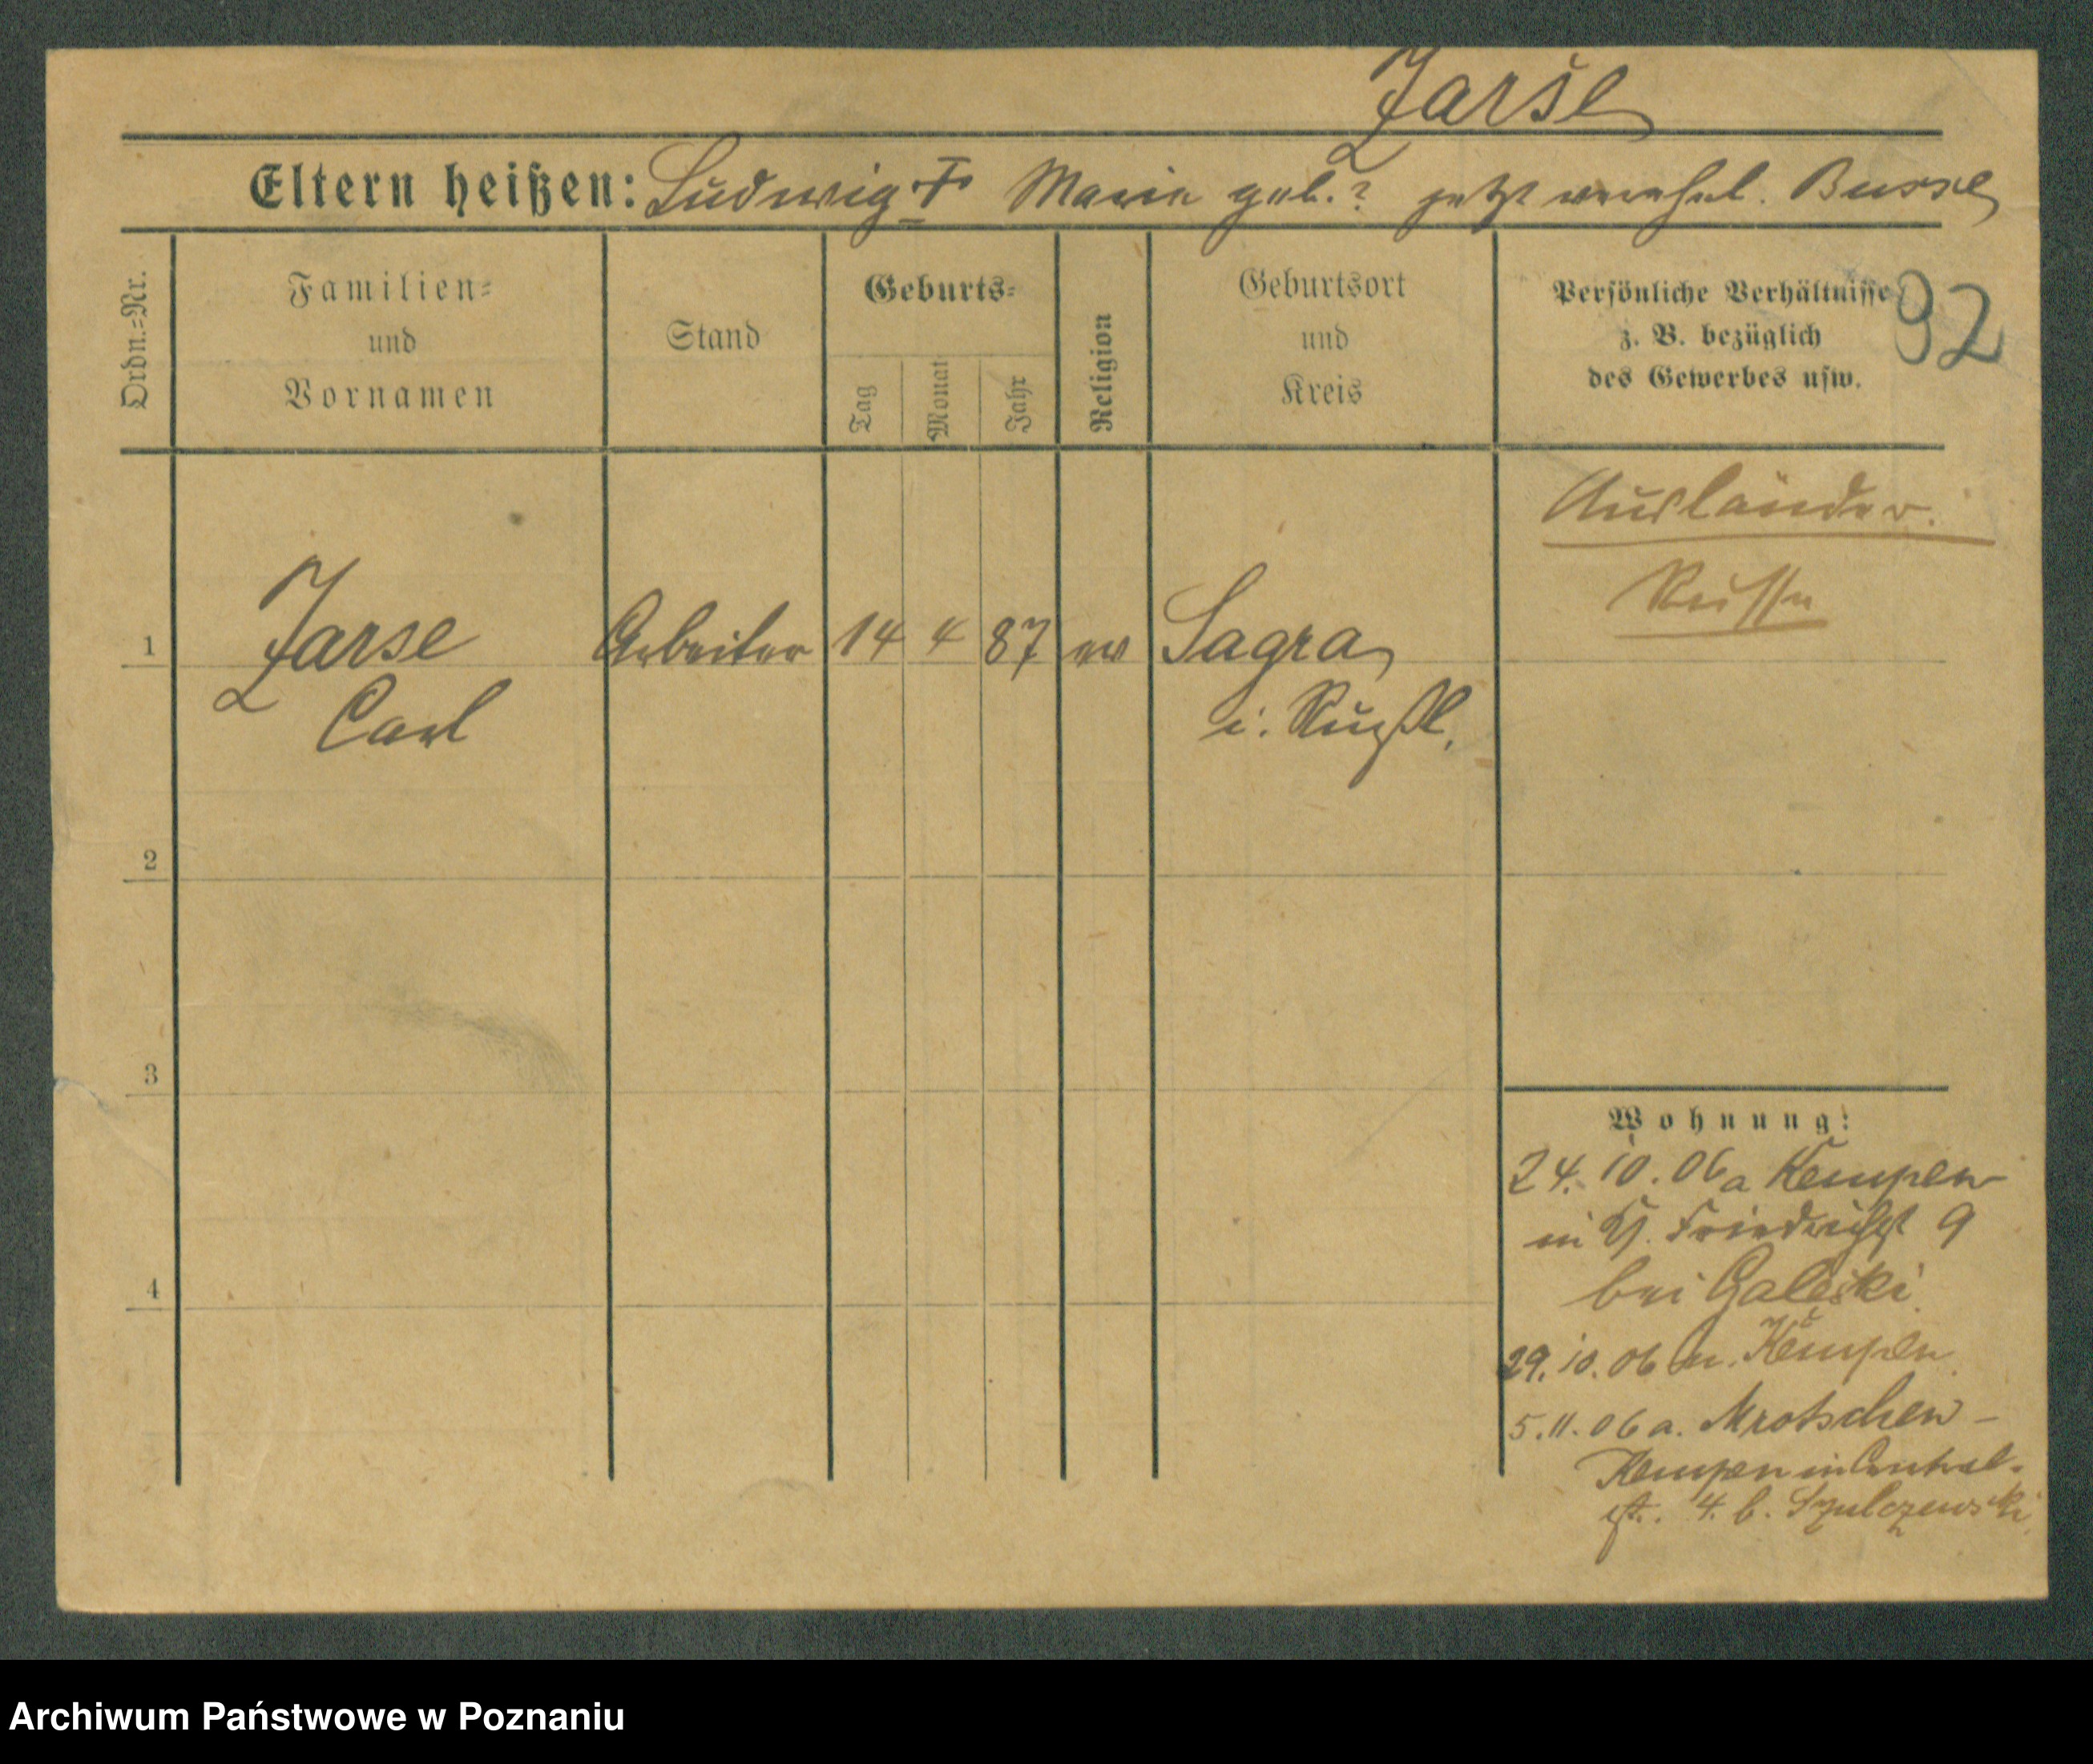 Jarse
Eltern heißen: Ludwig † Marie geb. ? jetzt verehel. Busse
Ordn.=Nr.
Familien=
und
Vornamen
Stand
Geburts=
Tag
Monat
Jahr
Religion
Geburtsort
und
Kreis
Persönliche Verhältnisse
z. B. bezüglich
des Gewerbes usw.
92
Ausländer.
Russe
1 Jarse Arbeiter 14 4 87 ev Sagra
Carl i. Rußl.
2
3
4
Wohnung:
24. 10. 06 a Kempen
in Friedrichst 9
bei Galeski
29. 10. 06 n. Kempen
5. 11. 06 a. Mrotschen-
Kempen in Central-
st. 4. b. Szulczewski
Archiwum Państwowe w Poznaniu